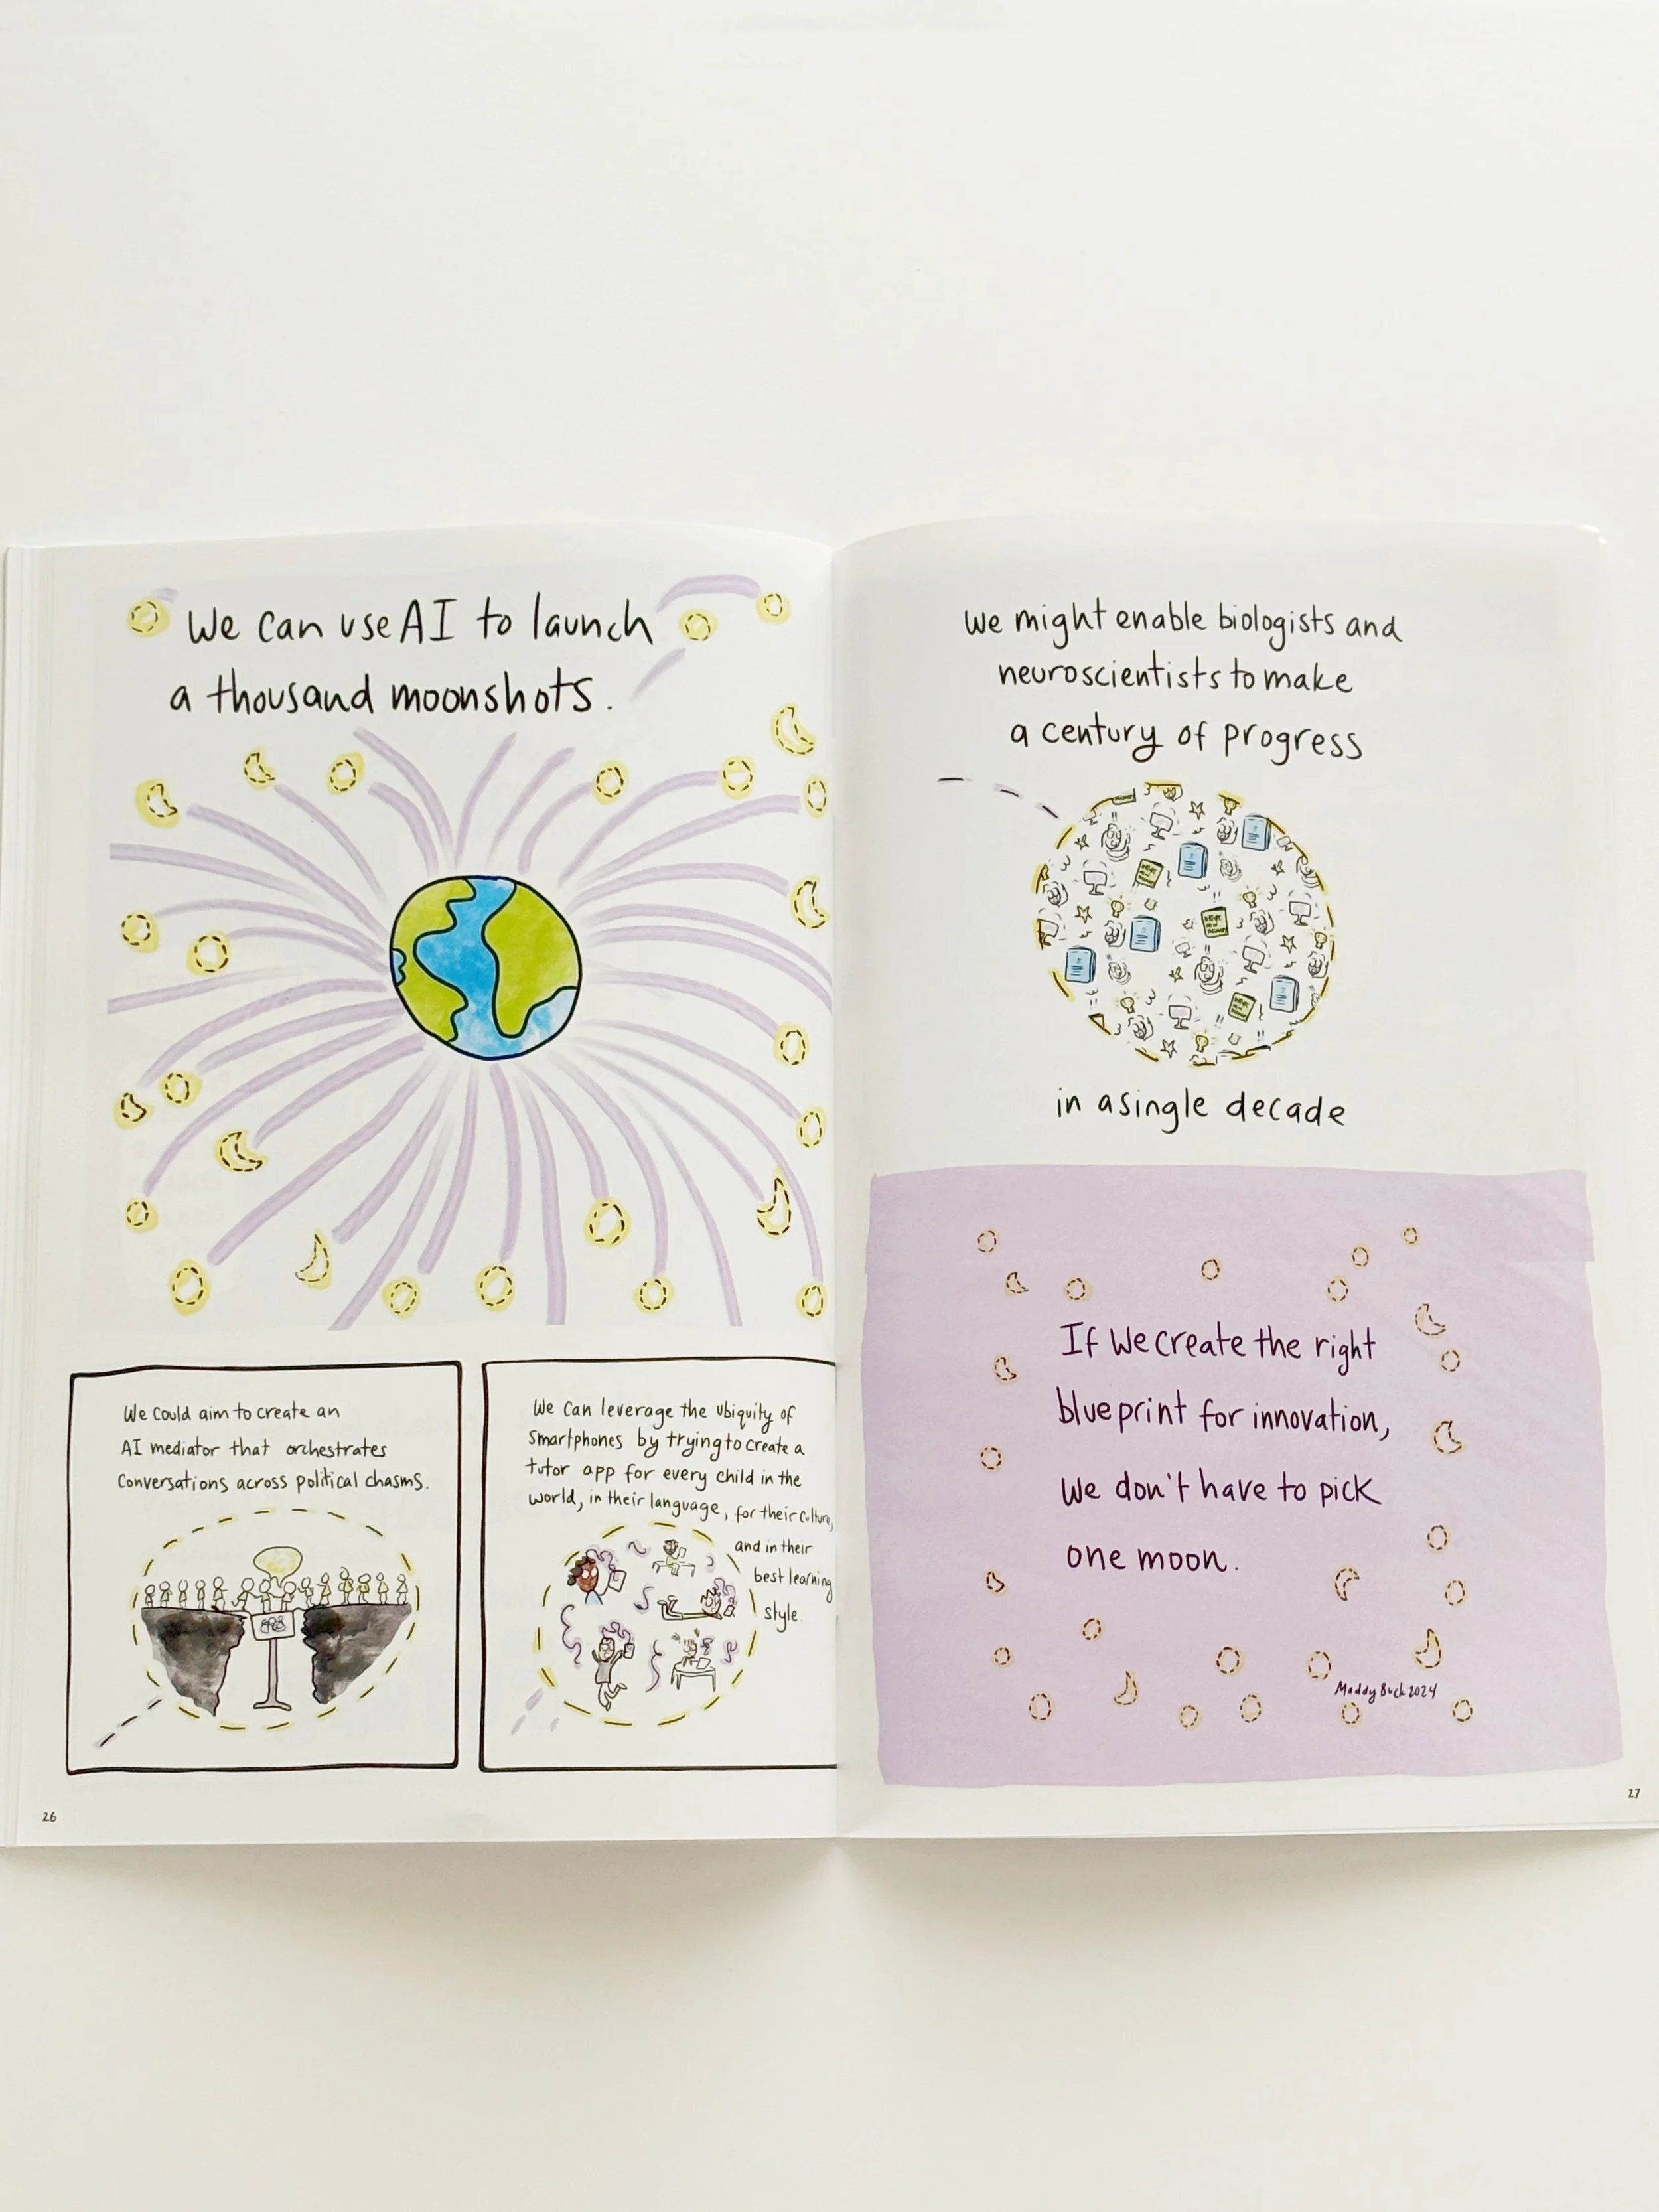 We can use AI to launch
a thousand moonshots.
We could aim to create an
AI mediator that orchestrates
conversations across political chasms.
We can leverage the ubiquity of
smartphones by trying to create a
tutor app for every child in the
world, in their language, for their culture,
and in their
best learning
style.
26
We might enable biologists and
neuroscientists to make
a century of progress
in a single decade
If we create the right
blueprint for innovation,
we don't have to pick
one moon.
Maddy Buck 2024
27